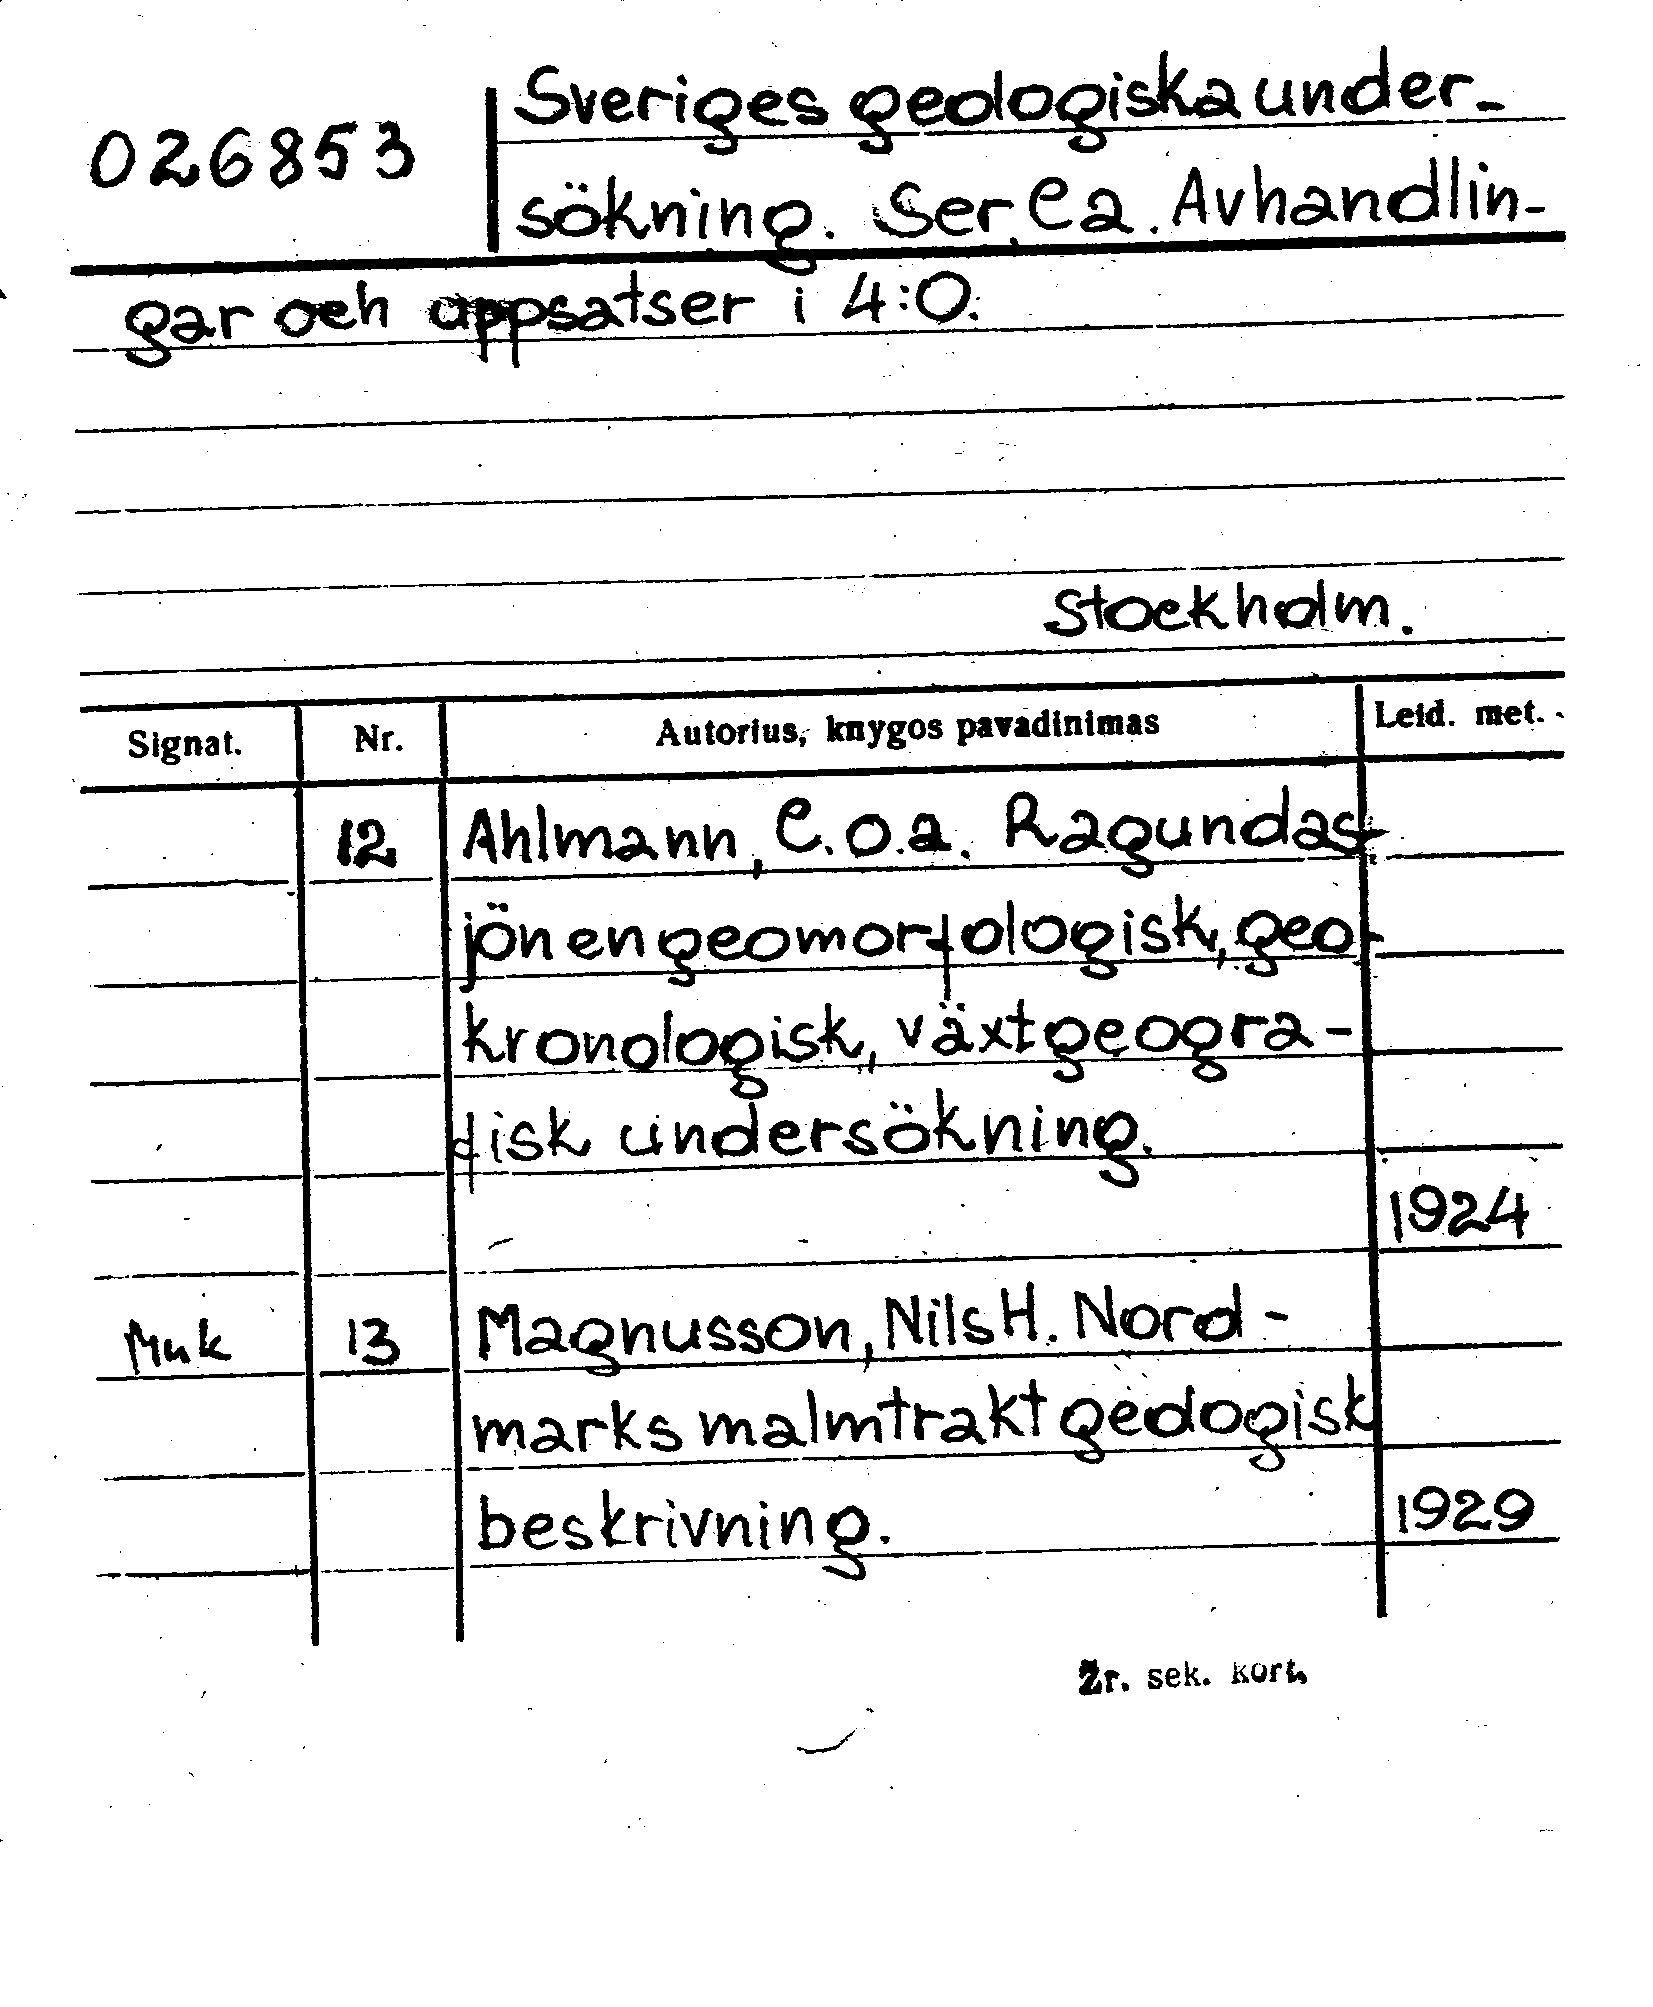 026853
Sveriges geologiska under-
sökning. Ser. Ca. Avhandlin-
gar och uppsatser i 4:0.
Stockholm.
Signat. Nr. Autorius, knygos pavadinimas Leid. met.
12 Ahlmann, C.o.a. Ragundas-
jön en geomorfologisk, geo-
kronologisk, växtgeogra-
fisk undersökning.
1924
Muk 13 Magnusson, Nils H. Nord-
marks malmtrakt geologisk
beskrivning. 1929
Žr. sek. kort.